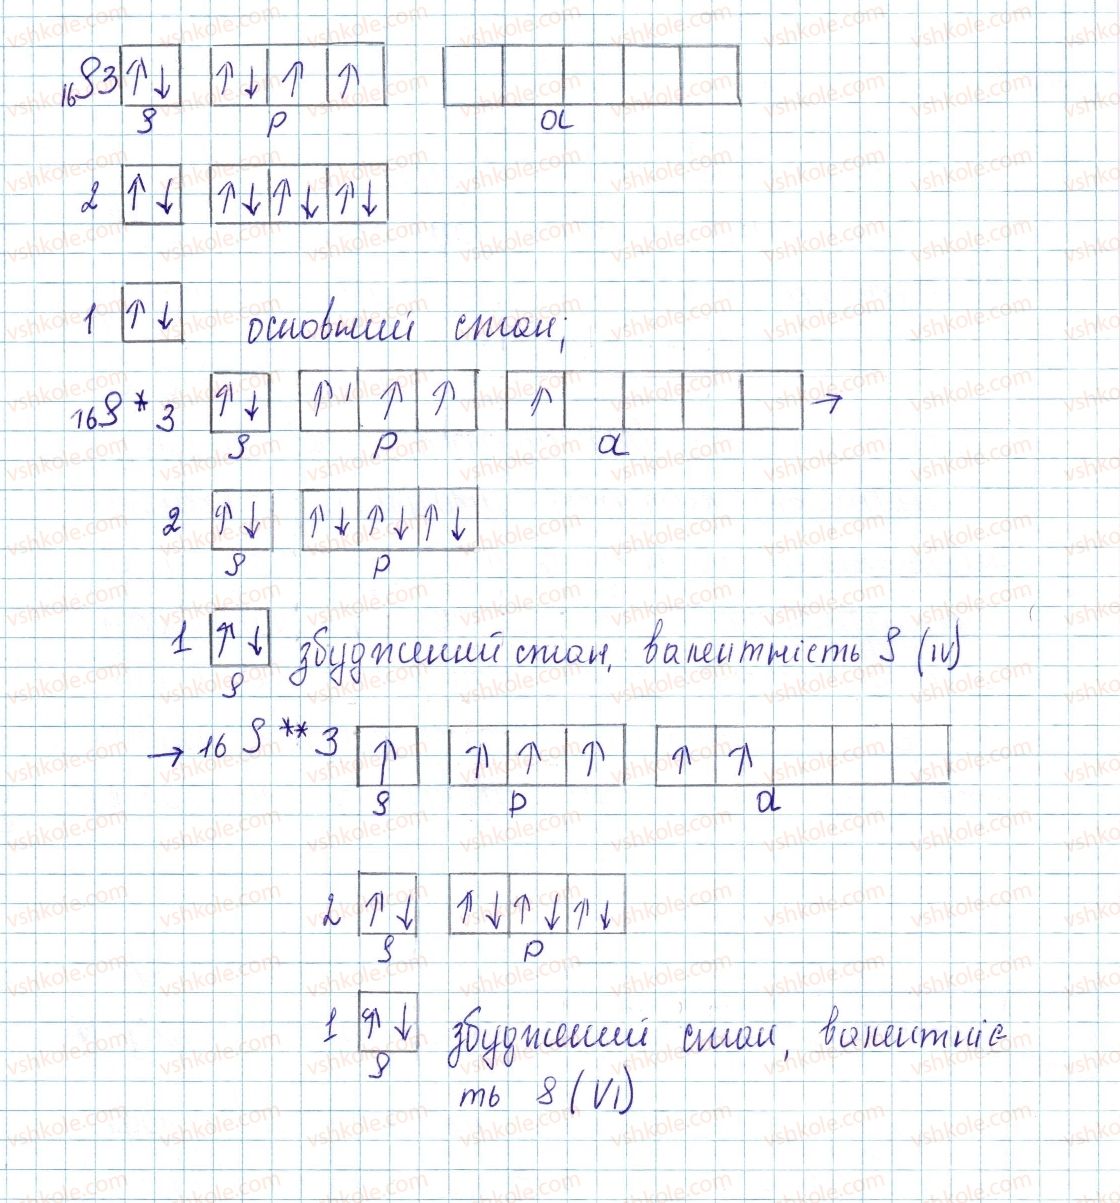 ₁₆S 3 ↑↓ ↑↓ ↑ ↑
s p d
2 ↑↓ ↑↓ ↑↓ ↑↓
1 ↑↓ основний стан;
₁₆S * 3 ↑↓ ↑ ↑ ↑ ↑ →
s p d
2 ↑↓ ↑↓ ↑↓ ↑↓
s p
1 ↑↓ збуджений стан, валентність S (IV)
s
→ ₁₆S ** 3 ↑ ↑ ↑ ↑ ↑ ↑
s p d
2 ↑↓ ↑↓ ↑↓ ↑↓
s p
1 ↑↓ збуджений стан, валентніс
s
ть S (VI)